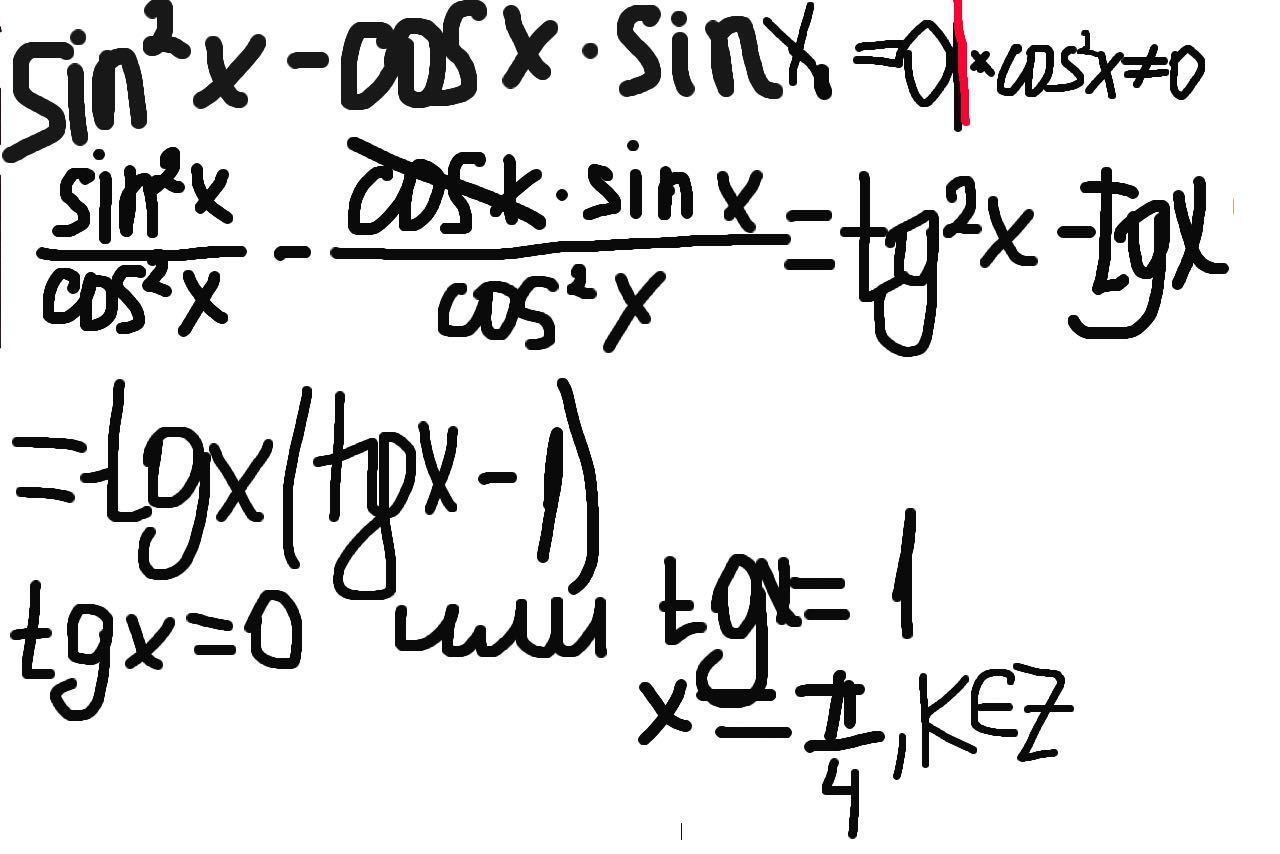 sin²x - cosx · sinx = 0 | × cos²x ≠ 0
sin²x/cos²x - cosx · sinx/cos²x = tg²x - tgx
= tgx(tgx - 1)
tgx = 0 или tgx = 1
x = π/4, K∈Z